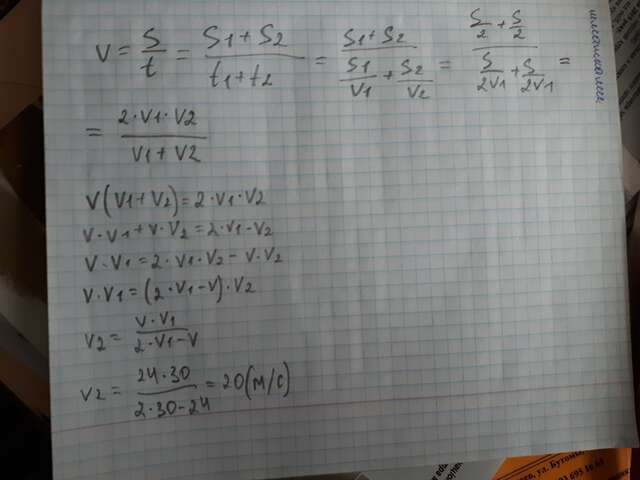 V = S/t = (S1+S2)/(t1+t2) = (S1+S2)/(S1/V1+S2/V2) = (S/2+S/2)/(S/2V1+S/2V1) =
= (2·V1·V2)/(V1+V2)
V(V1+V2)=2·V1·V2
V·V1+V·V2=2·V1-V2
V·V1=2·V1·V2-V·V2
V·V1=(2·V1-V)·V2
V2=(V·V1)/(2·V1-V)
V2=(24·30)/(2·30-24)=20(м/с)